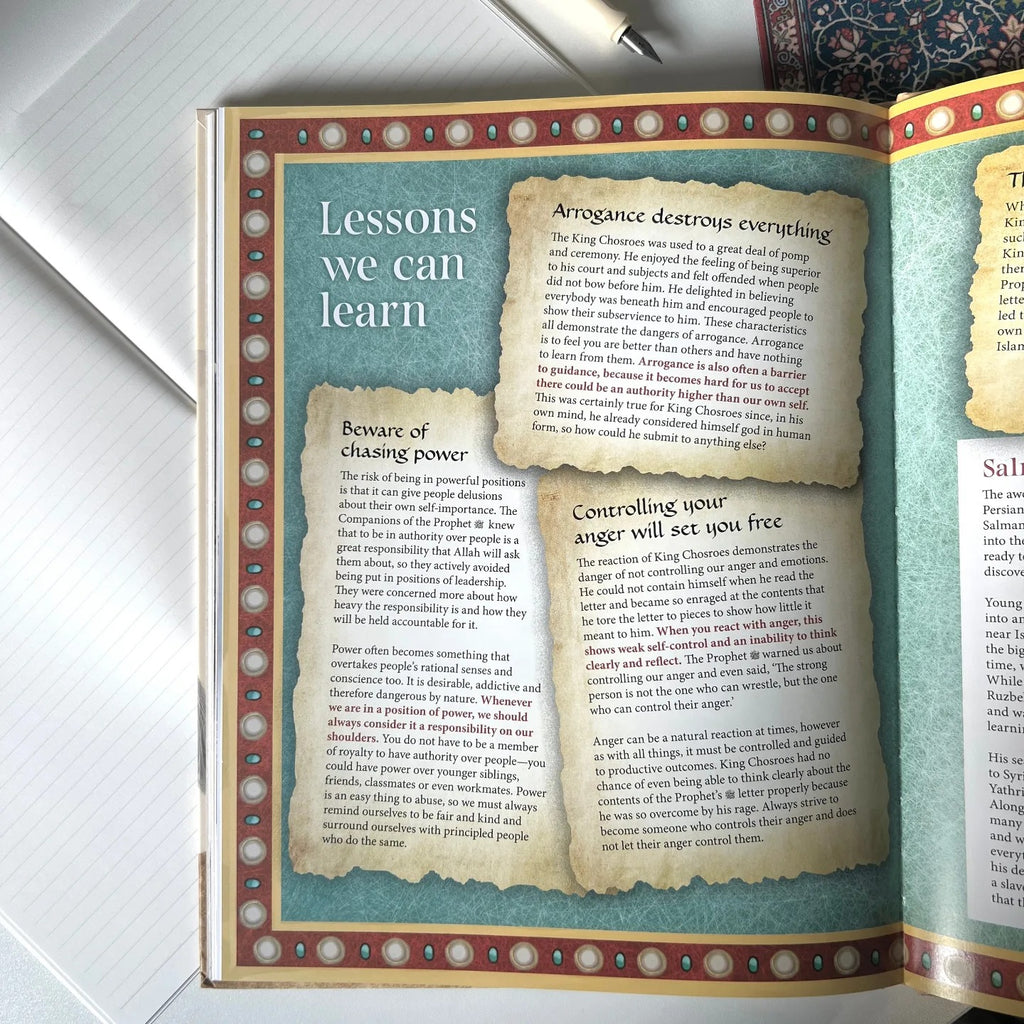 Lessons
we can
learn
Arrogance destroys everything
The King Chosroes was used to a great deal of pomp
and ceremony. He enjoyed the feeling of being superior
to his court and subjects and felt offended when people
did not bow before him. He delighted in believing
everybody was beneath him and encouraged people to
show their subservience to him. These characteristics
all demonstrate the dangers of arrogance. Arrogance
is to feel you are better than others and have nothing
to learn from them. Arrogance is also often a barrier
to guidance, because it becomes hard for us to accept
there could be an authority higher than our own self.
This was certainly true for King Chosroes since, in his
own mind, he already considered himself god in human
form, so how could he submit to anything else?
Beware of
chasing power
The risk of being in powerful positions
is that it can give people delusions
about their own self-importance. The
Companions of the Prophet ﷺ knew
that to be in authority over people is a
great responsibility that Allah will ask
them about, so they actively avoided
being put in positions of leadership.
They were concerned more about how
heavy the responsibility is and how they
will be held accountable for it.
Power often becomes something that
overtakes people's rational senses and
conscience too. It is desirable, addictive and
therefore dangerous by nature. Whenever
we are in a position of power, we should
always consider it a responsibility on our
shoulders. You do not have to be a member
of royalty to have authority over people—you
could have power over younger siblings,
friends, classmates or even workmates. Power
is an easy thing to abuse, so we must always
remind ourselves to be fair and kind and
surround ourselves with principled people
who do the same.
Controlling your
anger will set you free
The reaction of King Chosroes demonstrates the
danger of not controlling our anger and emotions.
He could not contain himself when he read the
letter and became so enraged at the contents that
he tore the letter to pieces to show how little it
meant to him. When you react with anger, this
shows weak self-control and an inability to think
clearly and reflect. The Prophet ﷺ warned us about
controlling our anger and even said, 'The strong
person is not the one who can wrestle, but the one
who can control their anger.'
Anger can be a natural reaction at times, however
as with all things, it must be controlled and guided
to productive outcomes. King Chosroes had no
chance of even being able to think clearly about the
contents of the Prophet's ﷺ letter properly because
he was so overcome by his rage. Always strive to
become someone who controls their anger and does
not let their anger control them.
The
Persian
Salman
into the
ready to
Young
into an
near
the big
time,
While
and
His
to
Along
many
and
a
that